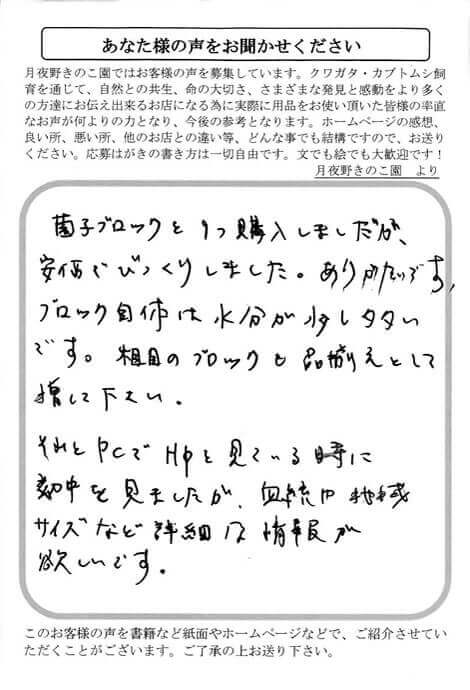 あなた様の声をお聞かせください
月夜野きのこ園ではお客様の声を募集しています。クワガタ・カブトムシ飼
育を通じて、自然との共生、命の大切さ、さまざまな発見と感動をより多く
の方達にお伝え出来るお店になる為に実際に用品をお使い頂いた皆様の率直
なお声が何よりの力となり、今後の参考となります。ホームページの感想、
良い所、悪い所、他のお店との違い等、どんな事でも結構ですので、お送り
ください。応募はがきの書き方は一切自由です。文でも絵でも大歓迎です！
月夜野きのこ園　より
菌子ブロックを1つ購入しましたが、
安価でびっくりしました。ありがたいです。
ブロック自体は水分が少し多い
です。粗目のブロックも品揃えとして
増して下さい。
それとPCでHPを見ている時に
を見ましたが、血統や地域
サイズなど詳細な情報が
欲しいです。
このお客様の声を書籍など紙面やホームページなどで、ご紹介させてい
ただくことがございます。ご了承の上お送り下さい。